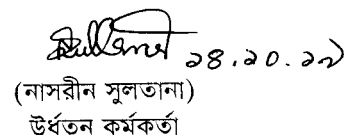 ২৪.১০.১৭
(নাসরীন সুলতানা)
উর্ধতন কর্মকর্তা